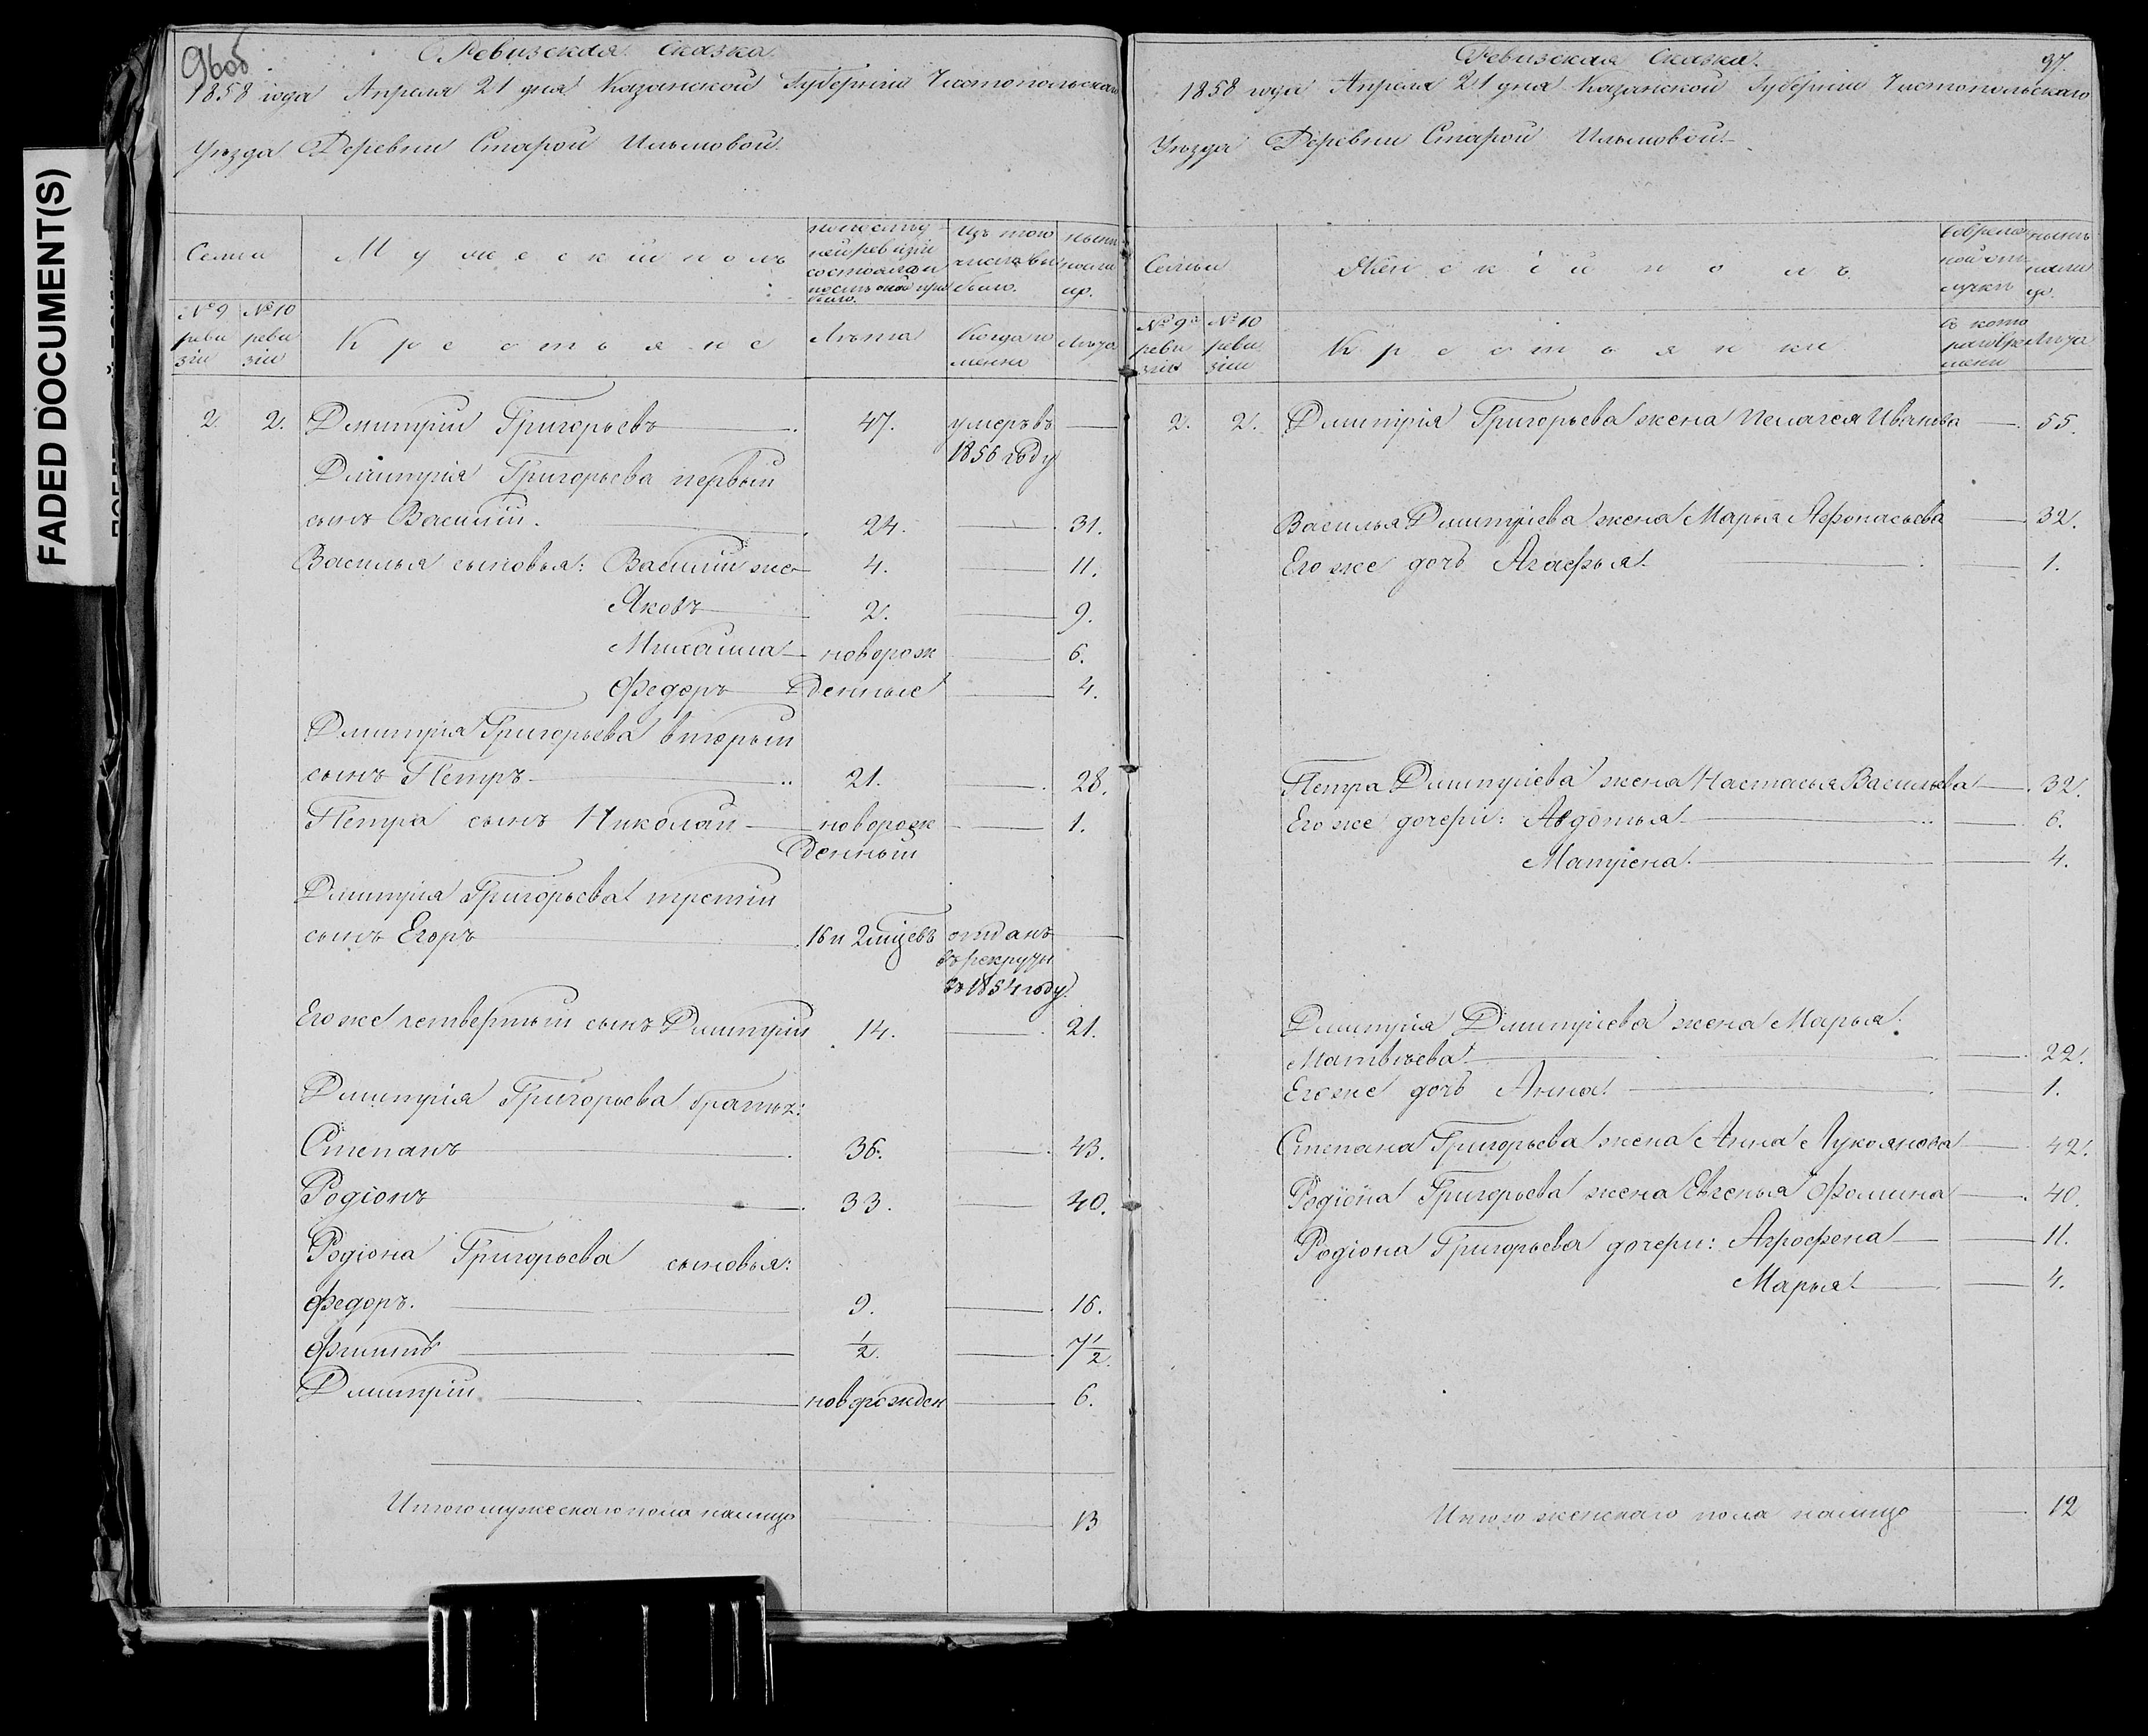 FADED DOCUMENT(S)
96об
Ревизская Сказка
1858 года Апреля 21 дня Казанской Губерніи Чистопольскаго
Уѣзда Деревни Старой Ильмовой
Семьи
Мужескій полъ
по послѣд
ней ревизіи
состояло и
послѣ оной при
было.
Изъ того
числа вы
было.
нынѣ
на ли
цо.
№ 9 реви зіи
№ 10 реви зіи
Крестьяне
Лѣта
Когда имянно
Лѣта
2. 2. Дмитрій Григорьевъ 47. умеръ въ —
1856 году
Дмитрія Григорьева первый
сынъ Василій. 24. — 31.
Василья сыновья: Василій же 4. — 11.
Яковъ 2. — 9.
Михайла новорож — 6.
Федоръ денные — 4.
Дмитрія Григорьева вторый
сынъ Петръ 21. — 28.
Петра сынъ Николай новорож — 1.
денный
Дмитрія Григорьева третій
сынъ Егоръ 16 и 2 мцевъ отданъ —
въ рекруты
въ 1854 году.
Его же четвертый сынъ Дмитрій 14. — 21.
Дмитрія Григорьева братья:
Степанъ 36. — 43.
Родіонъ 33. — 40.
Родіона Григорьева сыновья:
Федоръ. 9. — 16.
Филипъ 1/2. — 7 1/2.
Дмитрій новорожден — 6.
Итого мужескаго пола налицо 13
Ревизская Сказка.
97.
1858 года Апреля 21 дня Казанской Губерніи Чистопольскаго
Уѣзда Деревни Старой Ильмовой.
Семьи
Женскій полъ
во време
нной от
лучкѣ
нынѣ
на ли
цо.
№ 9 реви зіи
№ 10 реви зіи
Крестьянки
съ кото
раго вре
мени
Лѣта
2. 2. Дмитрія Григорьева жена Пелагея Иванова — 55.
Василья Дмитріева жена Марья Афонасьева — 32.
Его же дочь Агафья. — 1.
Петра Дмитріева жена Настасья Васильева — 32.
Его же дочери: Авдотья — 6.
Матрена. — 4.
Дмитрія Дмитріева жена Марья
Матвѣева. — 22.
Его же дочь Анна. — 1.
Степана Григорьева жена Анна Лукоянова — 42.
Родіона Григорьева жена Евгенья Фомина — 40.
Родіона Григорьева дочери: Агрофена — 11.
Марья — 4.
Итого женскаго пола налицо — 12